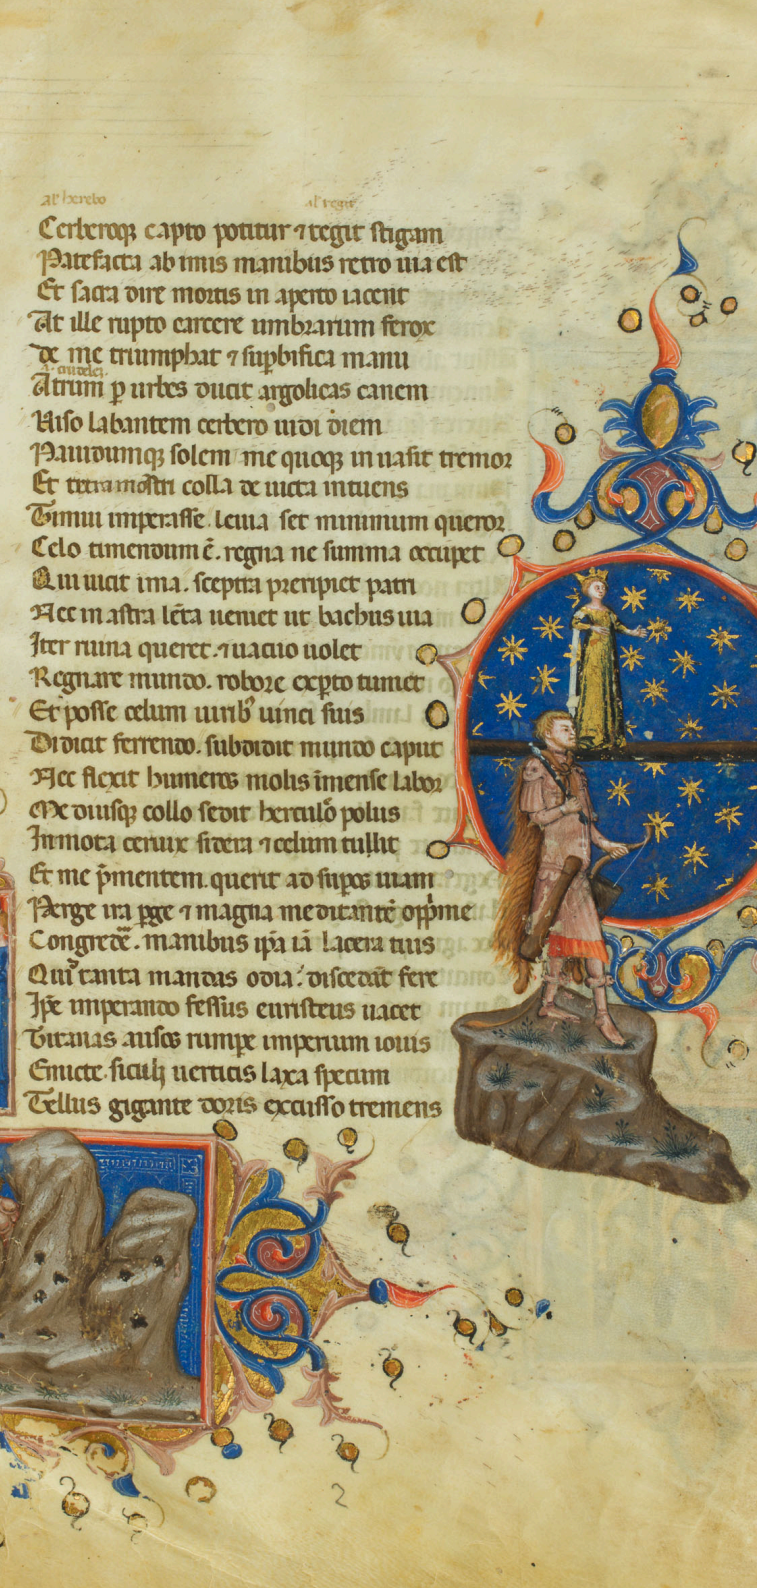 al' herebo al' regit
Cerberoqꝫ capto potitur ⁊ tegit stigam
Patefacta ab imis manibus retro uia est
Et sacra dire mortis in aperto iacent
At ille rupto carcere umbrarum ferox
de me triumphat ⁊ suꝑbifica manu
Atrum ꝑ urbes ducit argolicas canem
Uiso labantem cerbero uidi diem
Pauidumqꝫ solem me quoqꝫ inuasit tremor
Et colla deuicta intuens
Timui imperasse leuia set minimum queror
Celo timendum ē. regna ne summa occupet
Qui uicit ima. sceptra preripiet patri
Nec in astra lēta ueniet ut bachus uia
Iter ruina queret. ⁊ uacuo uolet
Regnare mundo. robore exꝑto tumet
Et posse celum uiribꝰ uinci suis
Didicit ferrendo. subdidit mundo caput
Nec flexit humeros molis īmense labor
Mediusqꝫ collo sedit herculō polus
Inmota ceruix sidera ⁊ celum tullit
Et me p̄mentem. querit ad suꝑos uiam
Perge ira ꝑge ⁊ magna meditantē opp̄me
Congredē. manibus ip̄a iā lacera tuis
Quid tanta mandas odia. discedāt fere
Ip̄e imperando fessus euristeus uacet
Titanas ausos rumpe imperium iouis
Emicte. siculi uerticis laxa specum
Tellus gigante doris excusso tremens
2